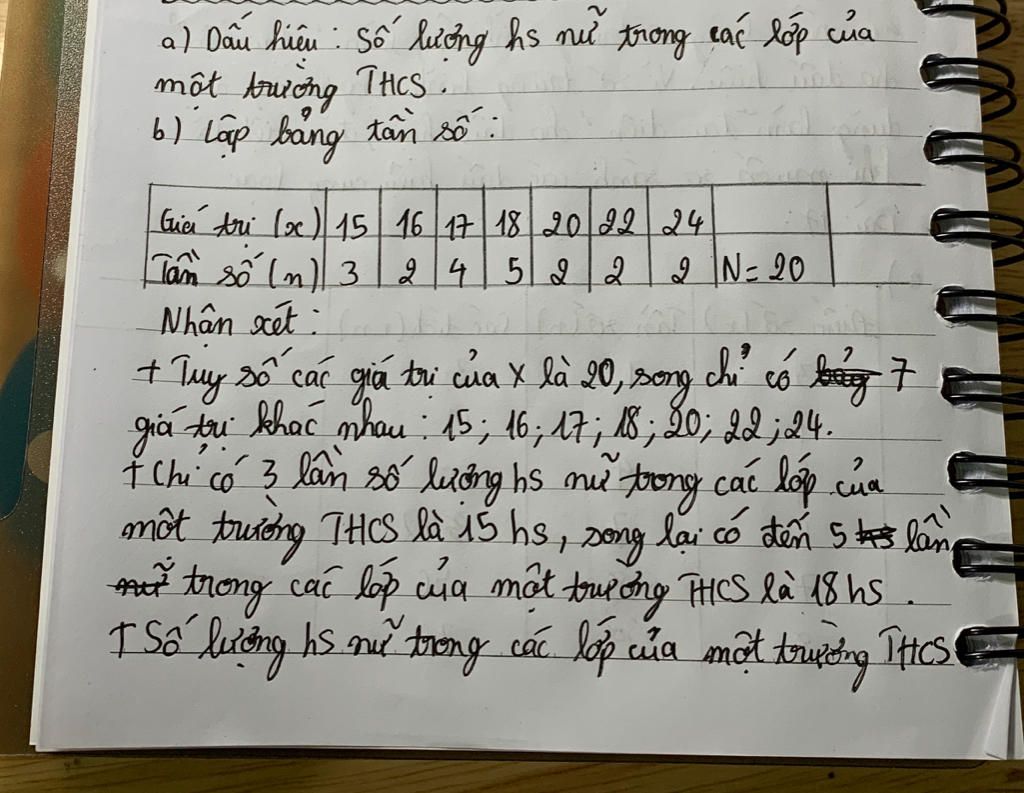 a) Dấu hiệu : Số lượng hs nữ trong các lớp của
một trường THCS .
b) Lập bảng tần số :
Giá trị (x) 15 16 17 18 20 22 24
Tần số (n) 3 2 4 5 2 2 2 N = 20
Nhận xét :
+ Tuy số các giá trị của X là 20, song chỉ có bảy 7
giá trị khác nhau : 15 ; 16 ; 17 ; 18 ; 20 ; 22 ; 24.
+ Chỉ có 3 lần số lượng hs nữ trong các lớp của
một trường THCS là 15 hs, song lại có đến 5 hs lần
nữ trong các lớp của một trường THCS là 18 hs .
+ Số lượng hs nữ trong các lớp của một trường THCS